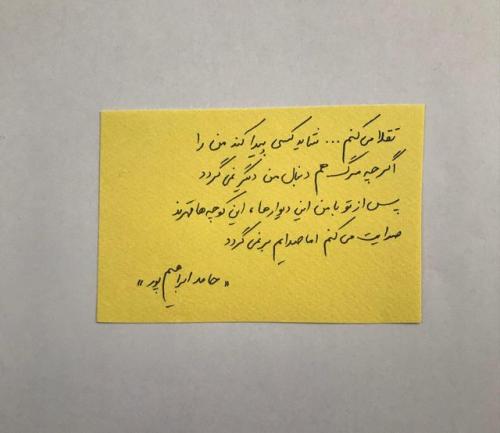 تقلا می کنم... شاید کسی پیدا کند من را
اگرچه مرگ هم دنبال من دیگر نمی گردد
پس از تو با من این دیوارها، این کوچه ها قهرند
صدایت می کنم اما صدایم برنمی گردد
"حامد ابراهیم پور"